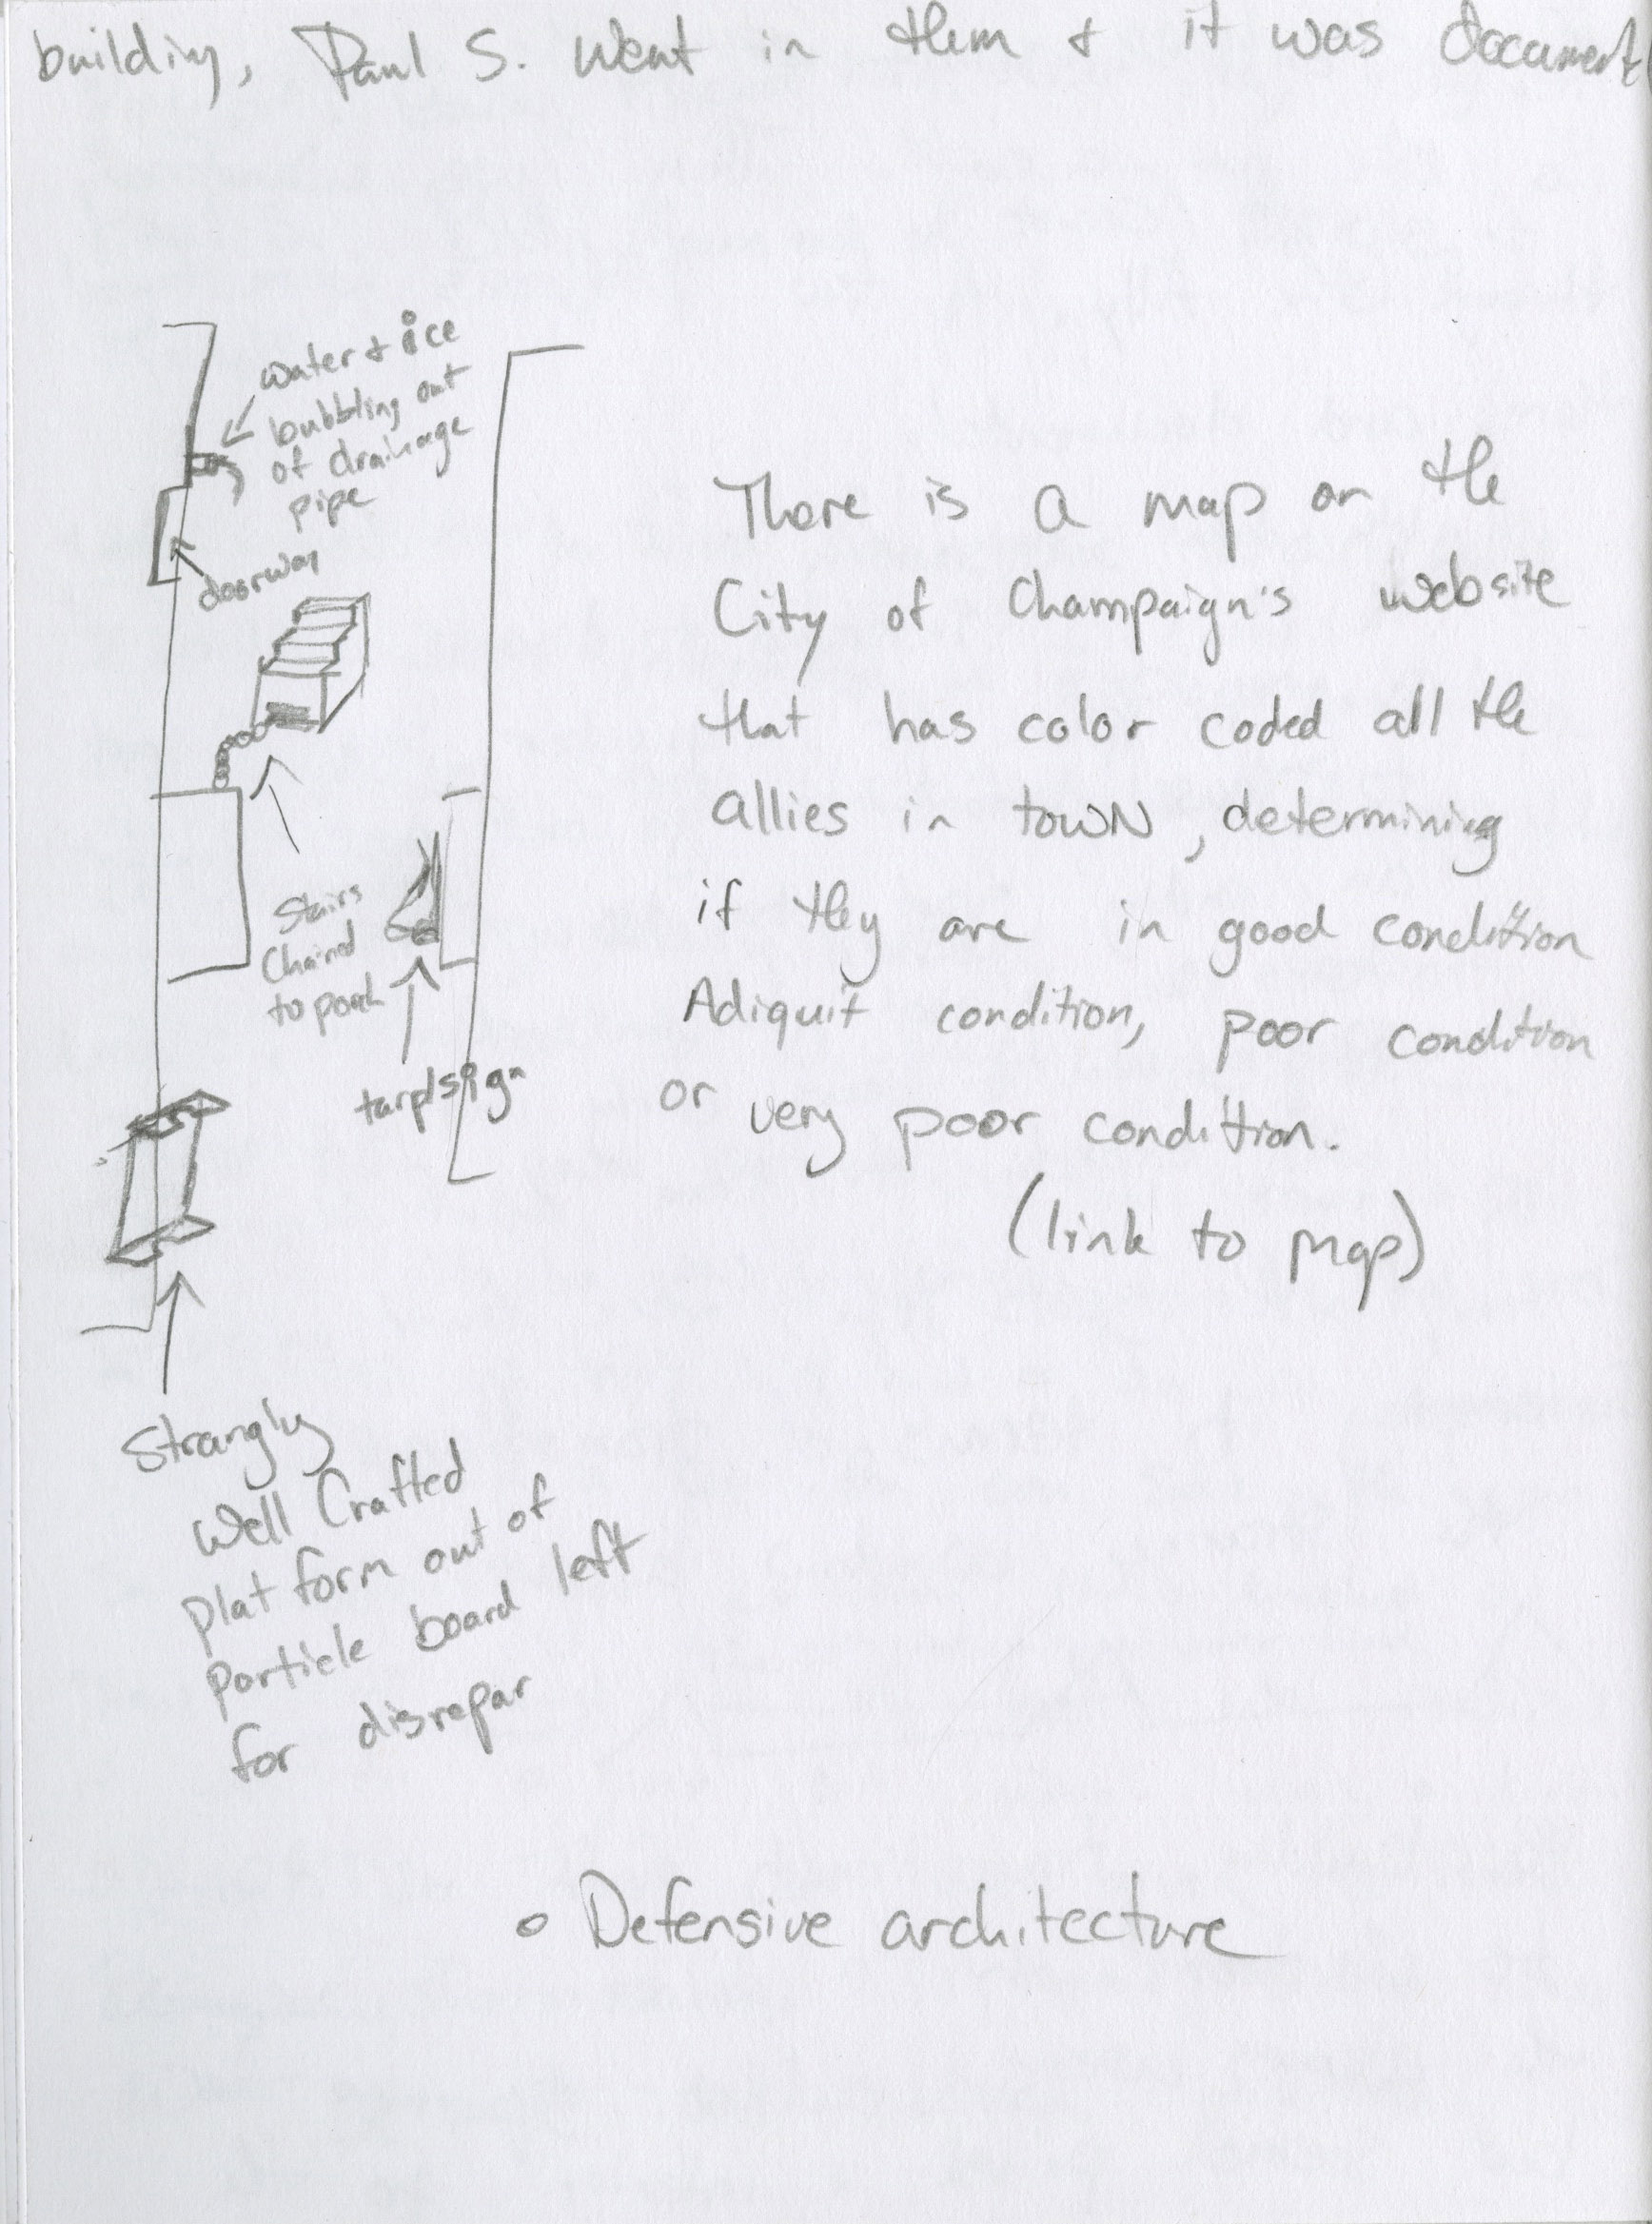 building, Paul S. went in them & it was document
water & ice
bubbling out
of drainage
pipe
doorway
Stairs
Chaind
to porch
tarp/sign
There is a map on the
City of Champaign's website
that has color coded all the
allies in town, determining
if they are in good condition
Adiquit condition, poor condition
or very poor condition.
(link to map)
Strangly
Well Crafted
platform out of
particle board left
for disrepar
• Defensive architecture